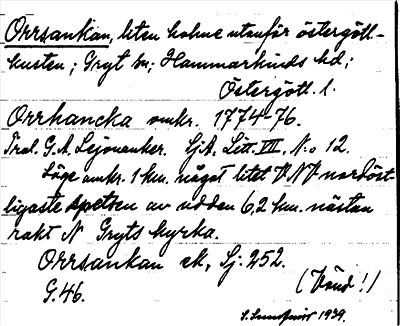 Orrsankan, liten holme utanför östergött-
kusten; Gryt sn; Hammarkinds hd;
Östergötl. l.
Orrhancka omkr. 1774-76.
Tral. G.A. Lejonanker. SjA. Litt. VII, N:o 12.
Läge omkr. 1 km. något litet VNV nordöst-
ligaste spetsen av udden 6,2 km. nästan
rakt N Gryts kyrka.
Orrsankan ek, Sj. 252.
G.46. (Vänd!)
1939.